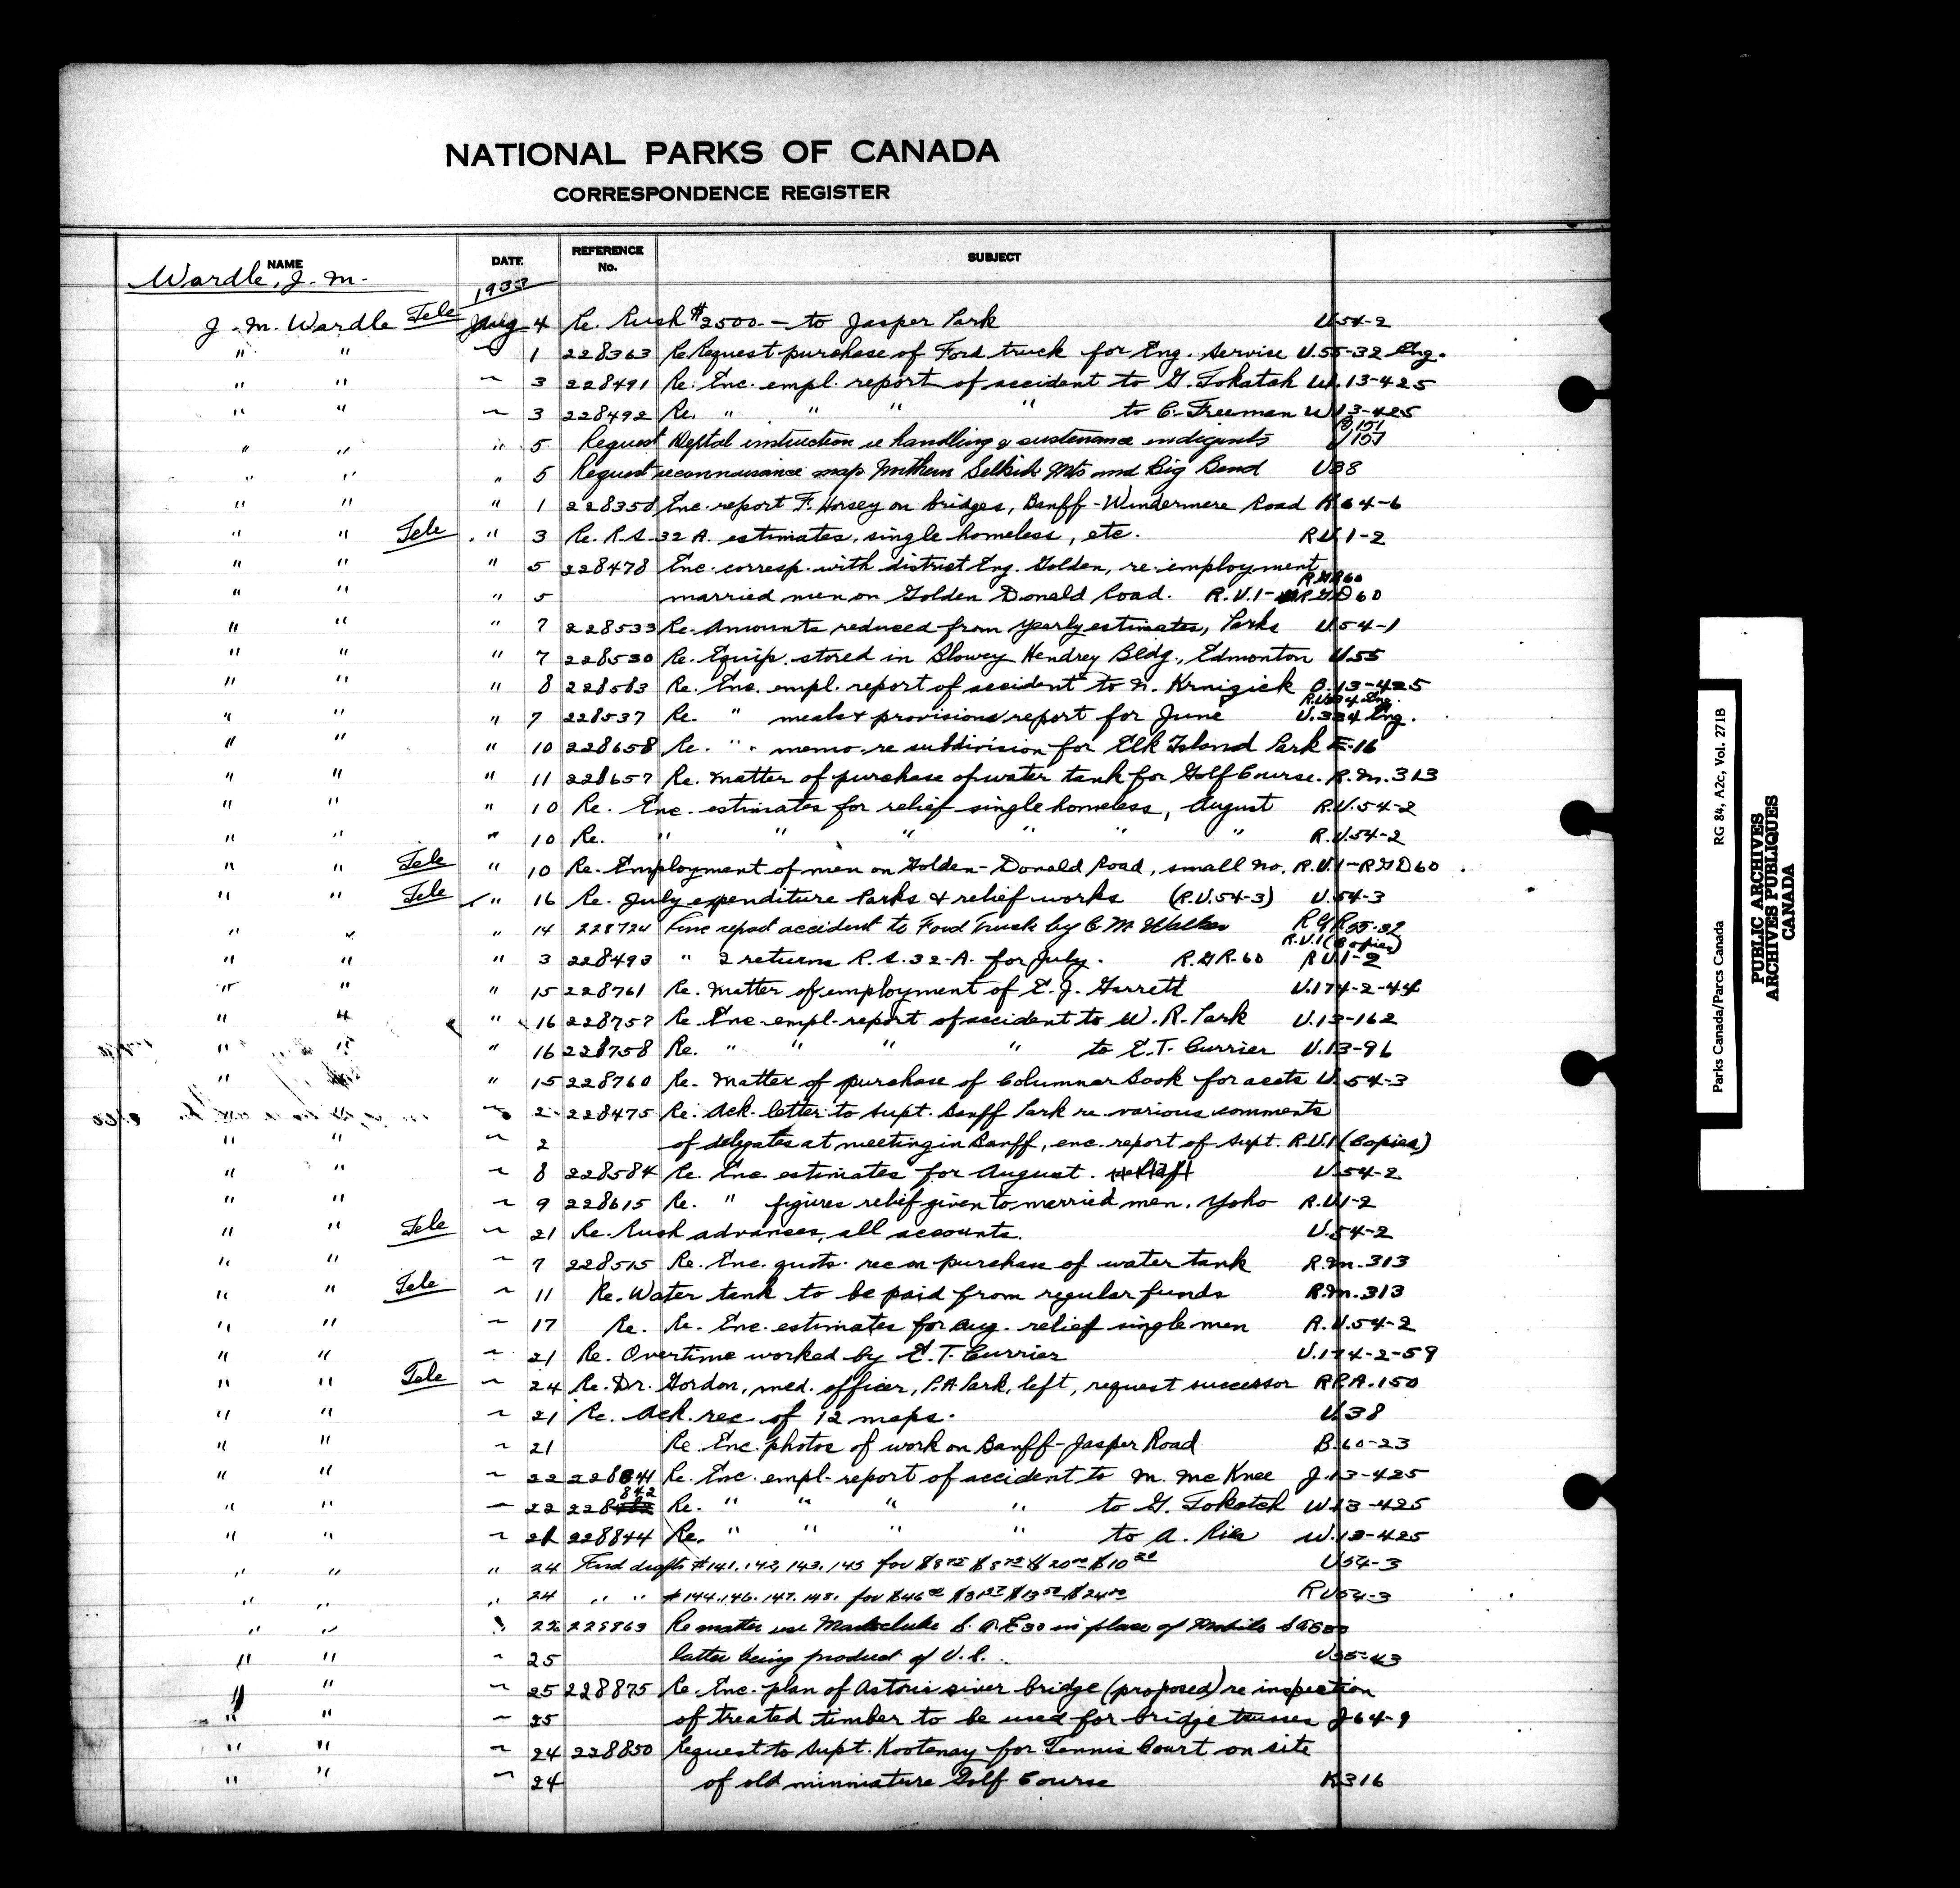 NATIONAL PARKS OF CANADA
CORRESPONDENCE REGISTER
NAME DATE REFERENCE No. SUBJECT
Wardle, J. M.
1933
J. M. Wardle Tele Aug 4 Re. Rush $2500.- to Jasper Park U.54-2
" " " 1 228363 Re Request purchase of Ford truck for Eng. Service U.55-32 Eng.
" " " 3 228491 Re. Enc. empl. report of accident to G. Tokatch W.13-425
" " " 3 228492 Re. " " " " to C. Freeman W13-425
" " " 5 Request Deptal instruction re handling & sustenance indigents U151
" " " 5 Request reconnaisance map Northern Selkirk Mts and Big Bend U38
" " " 1 228358 Enc. report F. Horsey on bridges, Banff-Windermere Road K64-6
" " Tele " 3 Re. R.S. 32 A. estimates, single homeless, etc. R.U.1-2
" " " 5 228478 Enc. corresp. with district Eng. Golden, re. employment
" " " 5 married men on Golden Donald Road. R.U.1- RGD60
" " " 7 228533 Re. Amounts reduced from yearly estimates, Parks U.54-1
" " " 7 228530 Re. Equip. stored in Blowey Hendrey Bldg., Edmonton U.55
" " " 8 228583 Re. Enc. empl. report of accident to N. Krnigick B.13-425
" " " 7 228537 Re. " meals & provisions report for June U.334 Eng.
" " " 10 228658 Re. " memo re subdivision for Elk Island Park E-16
" " " 11 228657 Re. Matter of purchase of water tank for Golf Course. R.M.313
" " " 10 Re. Enc. estimates for relief single homeless, August R.U.54-2
" " " 10 Re. " " " " " " R.U.54-2
" " Tele " 10 Re. Employment of men on Golden-Donald Road, small no. R.U.1-RGD60
" " Tele " 16 Re. July expenditure Parks & relief works (R.U.54-3) U.54-3
" " " 14 228724 Enc report accident to Ford Truck by C. M. Walker RGR55-32
R.U.1 (Copies)
" " " 3 228493 " 2 returns R.S. 32-A. for July. R.G.R-60 RU1-2
" " " 15 228761 Re. Matter of employment of E. J. Garrett U.174-2-44
" " " 16 228757 Re. Enc. empl. report of accident to W. R. Park U.13-162
" " " 16 228758 Re. " " " " to E.T. Currier U.13-96
" " " 15 228760 Re. Matter of purchase of Columnar book for accts U.54-3
" " " 2 228475 Re. Ack. letter to Supt. Banff Park re. various comments
" " " 2 of delegates at meeting in Banff, enc. report of Supt. R.U.1 (Copies)
" " " 8 228584 Re. Enc. estimates for August. U.54-2
" " " 9 228615 Re. " figures relief given to married men, Yoho R.U1-2
" " Tele " 21 Re. Rush advances, all accounts. U.54-2
" " " 7 228515 Re. Enc. quota. rec on purchase of water tank R.M.313
" " Tele " 11 Re. Water tank to be paid from regular funds R.M.313
" " " 17 Re. Re. Enc. estimates for Aug. relief single men R.U.54-2
" " " 21 Re. Overtime worked by E. T. Currier U.174-2-59
" " Tele " 24 Re. Dr. Gordon, med. officer, P.A. Park, left, request successor RPA.150
" " " 21 Re. Ack. rec. of 12 maps. U.38
" " " 21 Re. Enc. photos of work on Banff-Jasper Road B.60-23
" " " 22 228841 Re. Enc. empl. report of accident to M. McKnee J.13-425
" " " 22 228842 Re. " " " " to G. Tokatch W.13-425
" " " 21 228844 Re. " " " " to A. W.13-425
" " " 24 Fwd drafts #141, 142, 143, 145 for U54-3
" " " 24 " " #144, 146, 147, 148, for RU54-3
" " " 22 228863 Re matter use S.A.E 30 in place of
" " " 25 latter being product of U.S. U55-43
" " " 25 228875 Re. Enc. plan of Astoria river bridge (proposed) re inspection
" " " 25 of treated timber to be used for bridge trusses J64-9
" " " 24 228850 Request to Supt. Kootenay for Tennis Court on site
" " " 24 of old minniature Golf Course K316
Parks Canada/Parcs Canada RG 84, A2c, Vol. 271B
PUBLIC ARCHIVES
ARCHIVES PUBLIQUES
CANADA